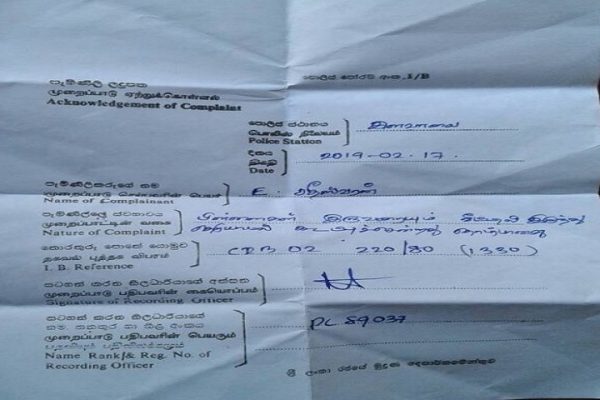 පැමිණිලි ලදුපත
முறைப்பாடு ஏற்றுக்கொள்ளல்
Acknowledgement of Complaint
පොලිස් ස්ථානය
பொலிஸ் நிலையம்
Police Station
இளவாலை
දිනය
திகதி
Date
2019-02-17.
පැමිණිලිකරුගේ නම
முறைப்பாடு செய்பவரின் பெயர்
Name of Complainant
E.
පැමිණිල්ලේ ස්වභාවය
முறைப்பாட்டின் வகை
Nature of Complaint
பிள்ளைகள் இருவரையும்
තොරතුරු පොතේ යොමුව
தகவல் புத்தக விபரம்
I. B. Reference
CRB 02 220/80 (1330)
සටහන් කරන නිලධාරියාගේ අත්සන
முறைப்பாடு பதிபவரின் கையொப்பம்
Signature of Recording Officer
සටහන් කරන නිලධාරියාගේ
முறைப்பாடு பதிபவரின் பெயரும்
Name Rank/& Reg. No. of
Recording Officer
PC 89037
ශ්‍රී ලංකා රජයේ මුද්‍රණ දෙපාර්තමේන්තුව